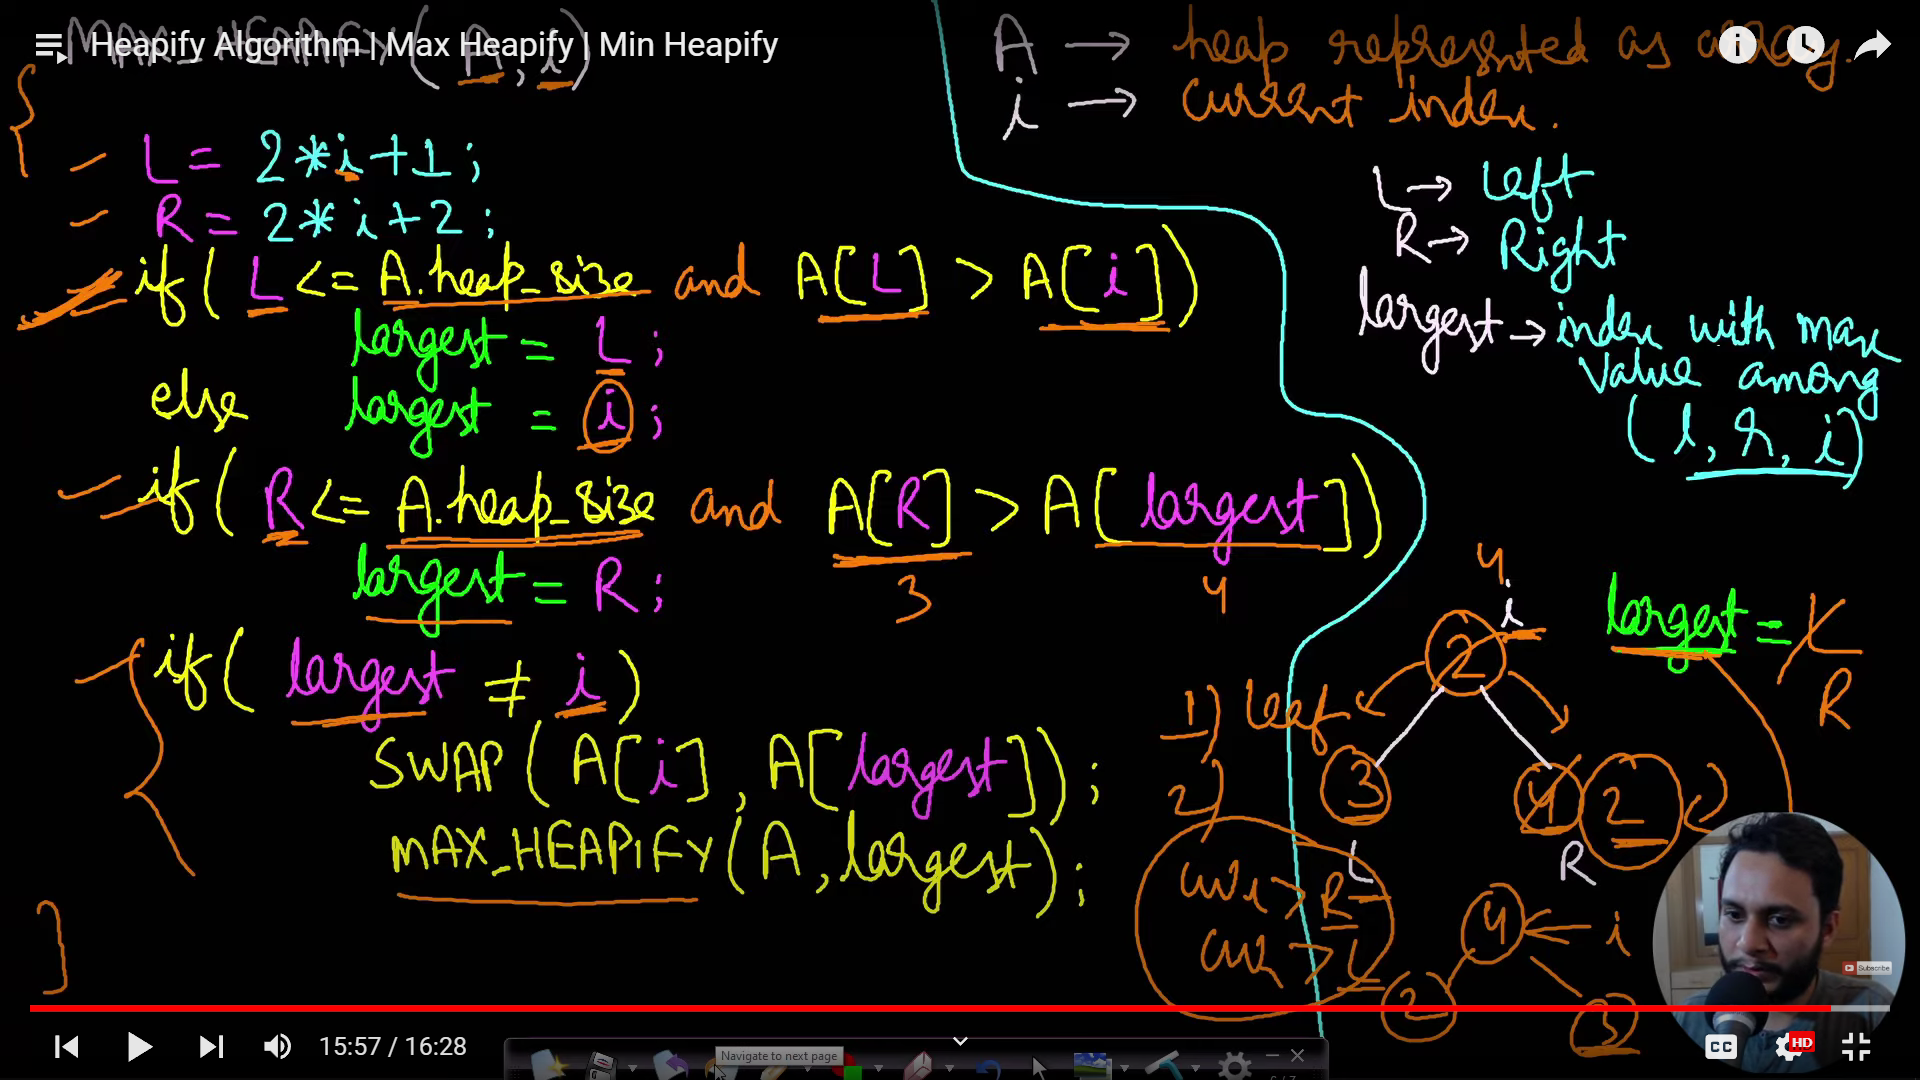 Heapify Algorithm | Max Heapify | Min Heapify
MAX_HEAPIFY(A, i)
{
L = 2*i+1;
R = 2*i+2;
if( L <= A.heap_size and A[L] > A[i])
largest = L;
else largest = i;
if( R <= A.heap_size and A[R] > A[largest])
3 4
largest = R;
if( largest ≠ i )
SWAP( A[i], A[largest]);
MAX_HEAPIFY(A, largest);
}
A → heap represnted as array.
i → current index.
L → Left
R → Right
largest → index with max
value among
(l, r, i)
4
i
2
largest = L
R
1) leaf
2)
3
4 2
L
R
cur > R
cur > L
4 ← i
2
3
Subscribe
15:57 / 16:28
Navigate to next page
CC
HD